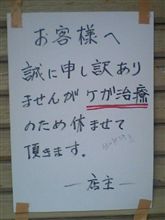 お客様へ
誠に申し訳あり
ませんがケガ治療
のため休ませて
頂きます。
店主